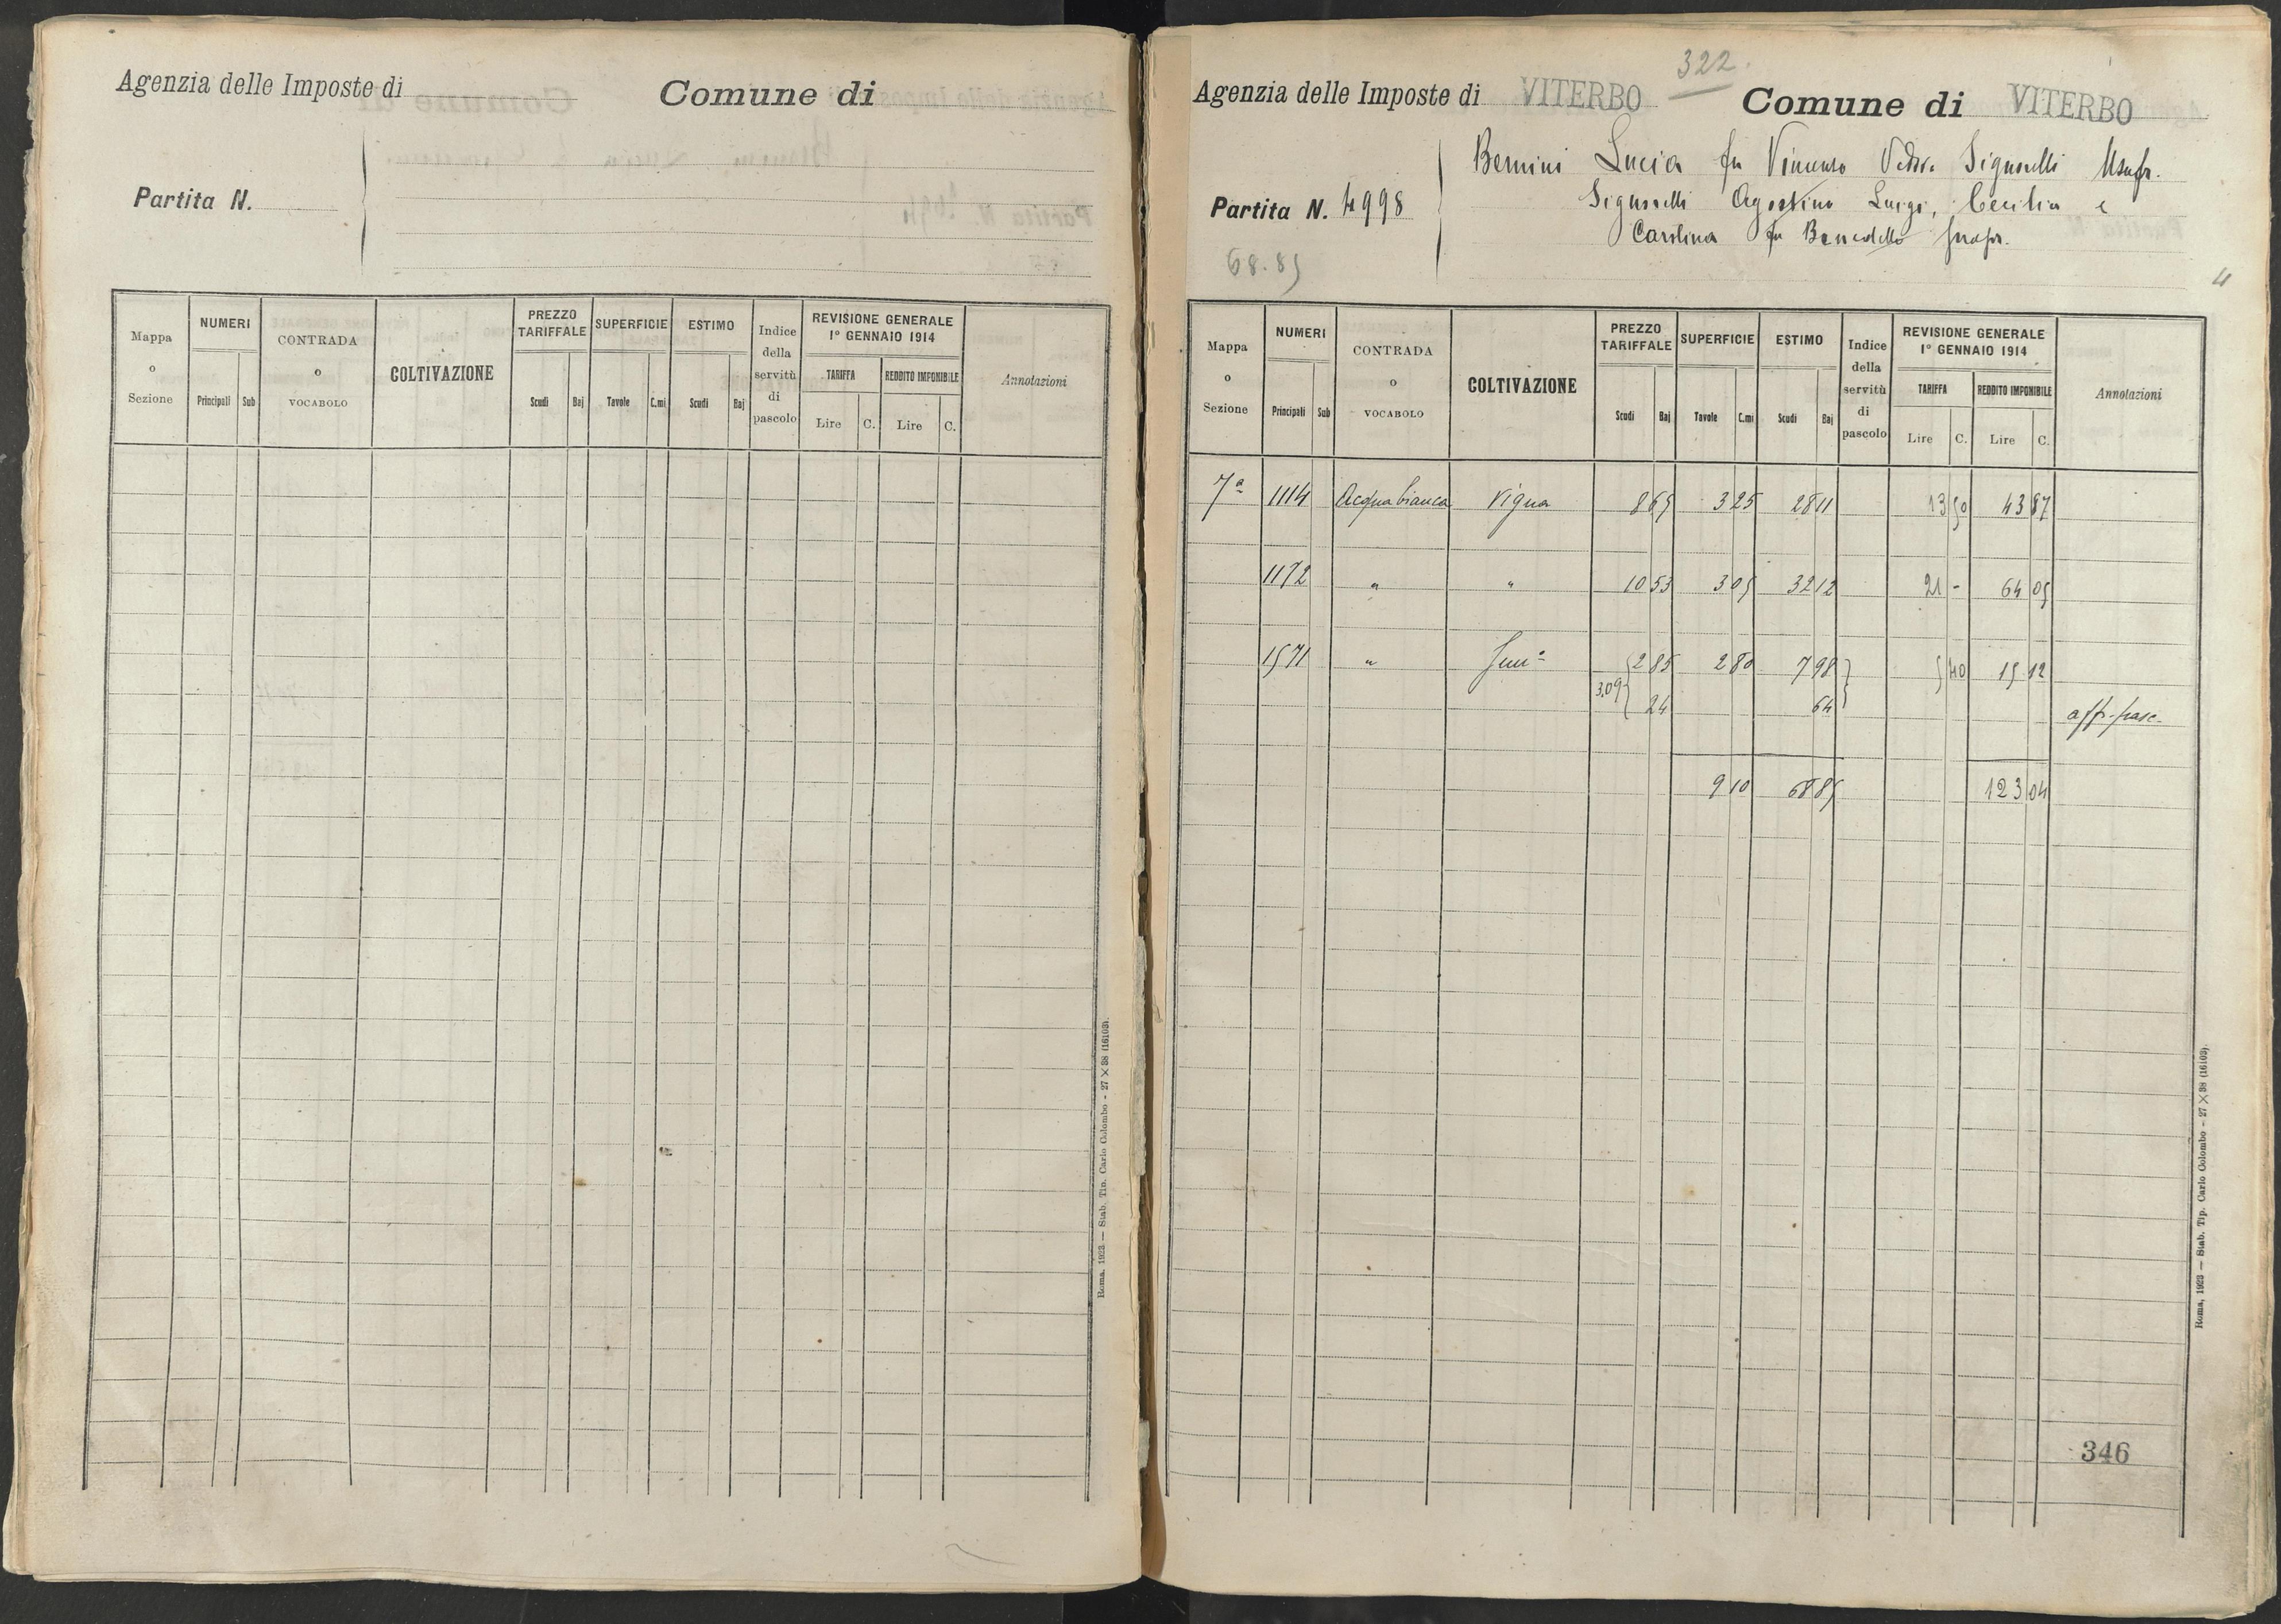 Agenzia delle Imposte di
Comune di
Partita N.
Mappa o Sezione
NUMERI
Principali Sub
CONTRADA o VOCABOLO
COLTIVAZIONE
PREZZO TARIFFALE
Scudi Baj
SUPERFICIE
Tavole C.mi
ESTIMO
Scudi Baj
Indice della servitù di pascolo
REVISIONE GENERALE
1° GENNAIO 1914
TARIFFA
Lire C.
REDDITO IMPONIBILE
Lire C.
Annotazioni
Roma, 1923 — Stab. Tip. Carlo Colombo - 27 X 38 (16103).
322.
Agenzia delle Imposte di VITERBO
Comune di VITERBO
Bernini Lucia fu Vincenzo Ved.va Signorelli Usufr.
Signorelli Agostino Luigi, Cecilia e
Carolina fu Benedetto propr.
Partita N. 4998
68.85
4
Mappa o Sezione
NUMERI
Principali Sub
CONTRADA o VOCABOLO
COLTIVAZIONE
PREZZO TARIFFALE
Scudi Baj
SUPERFICIE
Tavole C.mi
ESTIMO
Scudi Baj
Indice della servitù di pascolo
REVISIONE GENERALE
1° GENNAIO 1914
TARIFFA
Lire C.
REDDITO IMPONIBILE
Lire C.
Annotazioni
7ª 1114 Acquabianca Vigna 8 65 3 25 28 11 13 50 43 87
1172 " " 10 53 3 05 32 12 21 - 64 05
1571 " 2 85 2 80 7 98 5 40 15 12
3,09 24 64
aff. pasc.
9 10 68 85 123 04
346
Roma, 1923 — Stab. Tip. Carlo Colombo - 27 X 38 (16103).